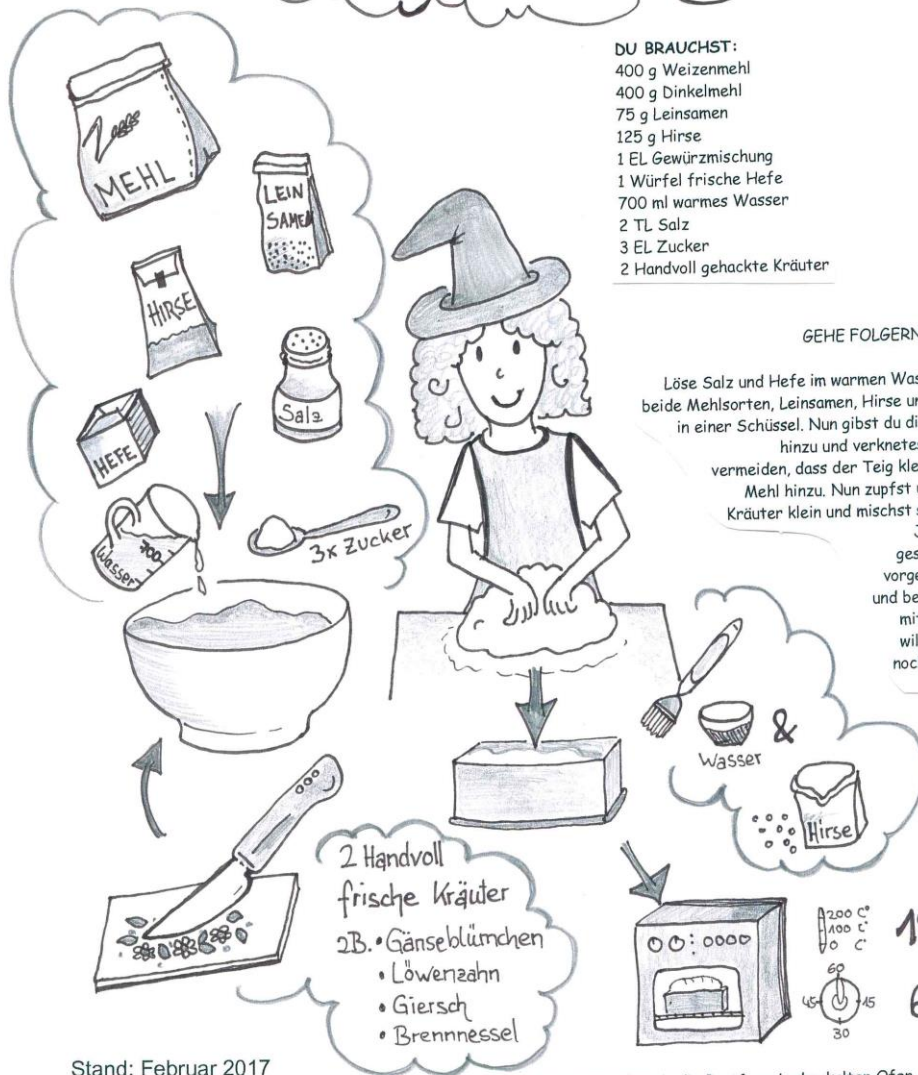 DU BRAUCHST:
400 g Weizenmehl
400 g Dinkelmehl
75 g Leinsamen
125 g Hirse
1 EL Gewürzmischung
1 Würfel frische Hefe
700 ml warmes Wasser
2 TL Salz
3 EL Zucker
2 Handvoll gehackte Kräuter
MEHL
LEIN
SAMEN
HIRSE
Salz
HEFE
700
Wasser
3x Zucker
GEHE FOLGERN
Löse Salz und Hefe im warmen Was
beide Mehlsorten, Leinsamen, Hirse un
in einer Schüssel. Nun gibst du di
hinzu und verknetes
vermeiden, dass der Teig kle
Mehl hinzu. Nun zupfst
Kräuter klein und mischst s
ges
vorge
und be
mi
wil
noc
Wasser
&
Hirse
2 Handvoll
frische Kräuter
zB. • Gänseblümchen
• Löwenzahn
• Giersch
• Brennnessel
200 C°
100 C°
0 C°
60
45 15
30
Stand: Februar 2017